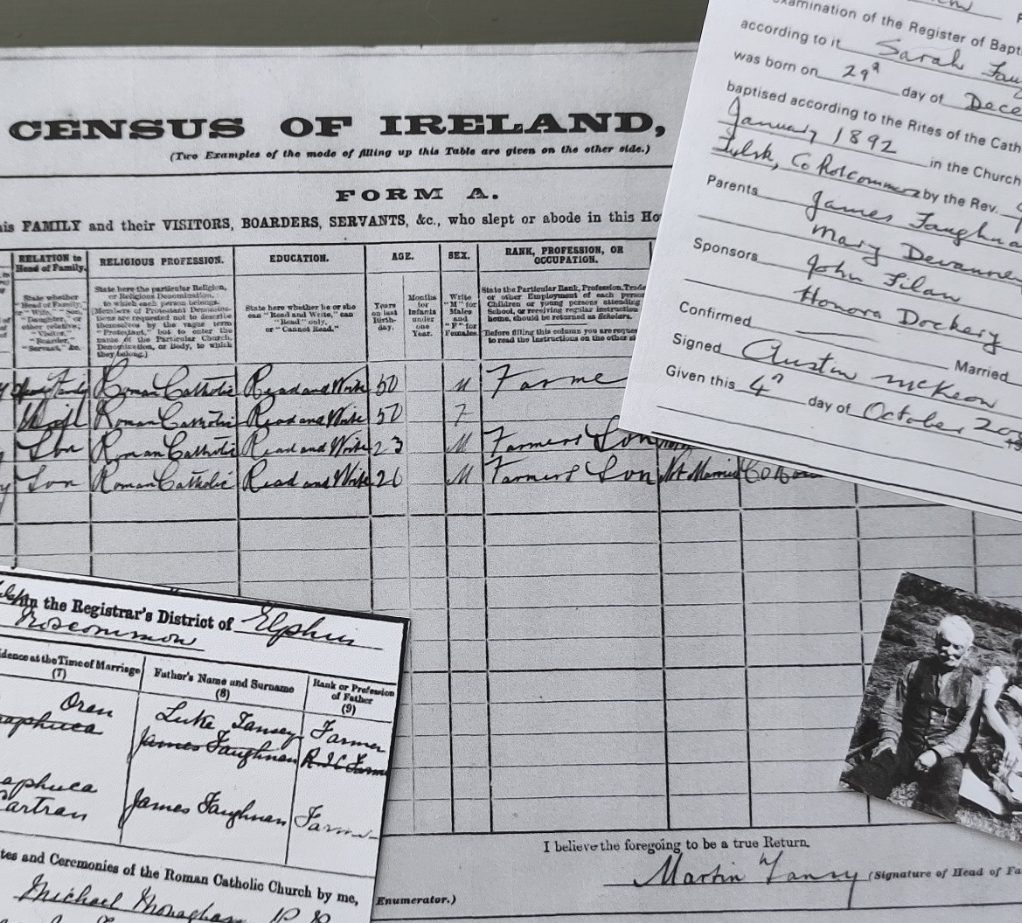 CENSUS OF IRELAND,
(Two Examples of the mode of filling up this Table are given on the other side.)
FORM A.
his FAMILY and their VISITORS, BOARDERS, SERVANTS, &c., who slept or abode in this Ho
RELATION to Head of Family.
RELIGIOUS PROFESSION.
EDUCATION.
AGE.
SEX.
RANK, PROFESSION, OR OCCUPATION.
State whether "Head of Family," or "Wife," "Son," "Daughter," or other relative; "Visitor," "Boarder," "Servant," &c.
State here the particular Religion, or Religious Denomination, to which each person belongs.
[Members of Protestant Denominations are requested not to describe themselves by the vague term "Protestant," but to enter the name of the Particular Church, Denomination, or Body, to which they belong.]
State here whether he or she can "Read and Write," can "Read" only, or "Cannot Read."
Years on last Birthday.
Months for Infants under one Year.
Write "M" for Males and "F" for Females.
State the Particular Rank, Profession, Trade
or other Employment of each person
Children or young persons attending
School, or receiving regular instruction
home, should be returned as Scholars.
Before filling this column you are reques
to read the Instructions on the other s
Roman Catholic Read and Write 50 M Farme
Wife Roman Catholic Read and Write 50 F
Son Roman Catholic Read and Write 23 M Farmers Son
Son Roman Catholic Read and Write 26 M Farmers Son Not Married
I believe the foregoing to be a true Return.
Martin (Signature of Head of Fa
Enumerator.)
xamination of the Register of Bapt
according to it Sarah Fau
was born on 29th day of Dece
baptised according to the Rites of the Cath
January 1892 in the Church
Tulsk, Co Roscommon by the Rev.
Parents James Faughna
Mary Devanne
Sponsors John Filan
Honora Dockery
Confirmed
Married
Signed Austin McKeon
Given this 4th day of October 20
in the Registrar's District of Elphin
Roscommon
idence at the Time of Marriage (7)
Father's Name and Surname (8)
Rank or Profession of Father (9)
Oran Luke Tansey Farmer
raphuca James Faughnan
aphuca James Faughnan Farm
artran
tes and Ceremonies of the Roman Catholic Church by me,
Michael Monaghan